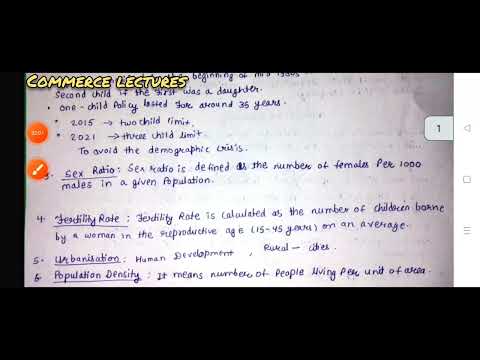 Commerce Lectures
beginning of mid 1980s
Second child if the first was a daughter.
• One-child Policy lasted for around 35 years.
* 2015 → two child limit.
* 2021 → three child limit
To avoid the demographic crisis.
3. Sex Ratio : Sex ratio is defined as the number of females Per 1000
males in a given Population.
4. Fertility Rate : Fertility Rate is calculated as the number of children borne
by a woman in the reproductive age (15-45 years) on an average.
5. Urbanisation : Human Development, Rural - cities.
6. Population Density : It means number of People living Per unit of area.
1